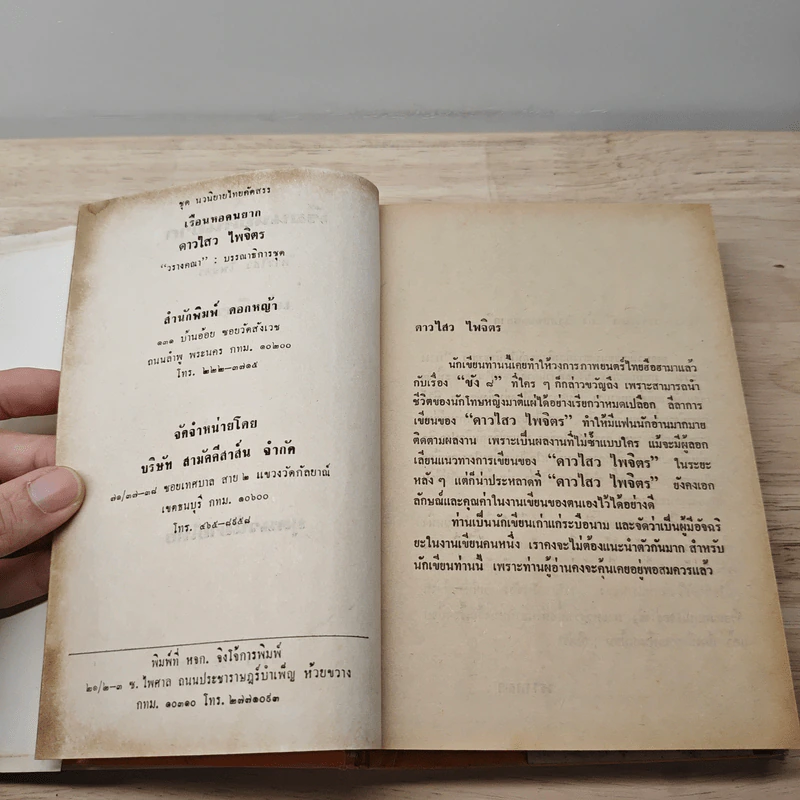 ชุด นวนิยายไทยคัดสรร
เรือนหอคนยาก
ดาวไสว ไพจิตร
“วรางคณา” : บรรณาธิการชุด
สำนักพิมพ์ ดอกหญ้า
๑๓๑ บ้านอ้อย ซอยวัดสังเวช
ถนนลำพู พระนคร กทม. ๑๐๒๐๐
โทร. ๒๒๒–๓๗๑๕
จัดจำหน่ายโดย
บริษัท สามัคคีสาส์น จำกัด
๗๑/๓๗–๓๘ ซอยเทศบาล สาย ๒ แขวงวัดกัลยาณ์
เขตธนบุรี กทม. ๑๐๖๐๐
โทร. ๔๖๕–๘๙๕๘
พิมพ์ที่ หจก. จิงโจ้การพิมพ์
๒๑/๒–๓ ซ. ไพศาล ถนนประชาราษฎร์บำเพ็ญ ห้วยขวาง
กทม. ๑๐๓๑๐ โทร. ๒๗๗๑๐๙๓
ดาวไสว ไพจิตร
นักเขียนท่านนี้เคยทำให้วงการภาพยนตร์ไทยฮือฮามาแล้ว
กับเรื่อง “ขัง ๘” ที่ใคร ๆ ก็กล่าวขวัญถึง เพราะสามารถนำ
ชีวิตของนักโทษหญิงมาตีแผ่ได้อย่างเรียกว่าหมดเปลือก ลีลาการ
เขียนของ “ดาวไสว ไพจิตร” ทำให้มีแฟนนักอ่านมากมาย
ติดตามผลงาน เพราะเป็นผลงานที่ไม่ซ้ำแบบใคร แม้จะมีผู้ลอก
เลียนแนวทางการเขียนของ “ดาวไสว ไพจิตร” ในระยะ
หลัง ๆ แต่ก็น่าประหลาดที่ “ดาวไสว ไพจิตร” ยังคงเอก
ลักษณ์และคุณค่าในงานเขียนของตนเองไว้ได้อย่างดี
ท่านเป็นนักเขียนเก่าแก่ระบือนาม และจัดว่าเป็นผู้มีอัจฉริ
ยะในงานเขียนคนหนึ่ง เราคงจะไม่ต้องแนะนำตัวกันมาก สำหรับ
นักเขียนท่านนี้ เพราะท่านผู้อ่านคงจะคุ้นเคยอยู่พอสมควรแล้ว